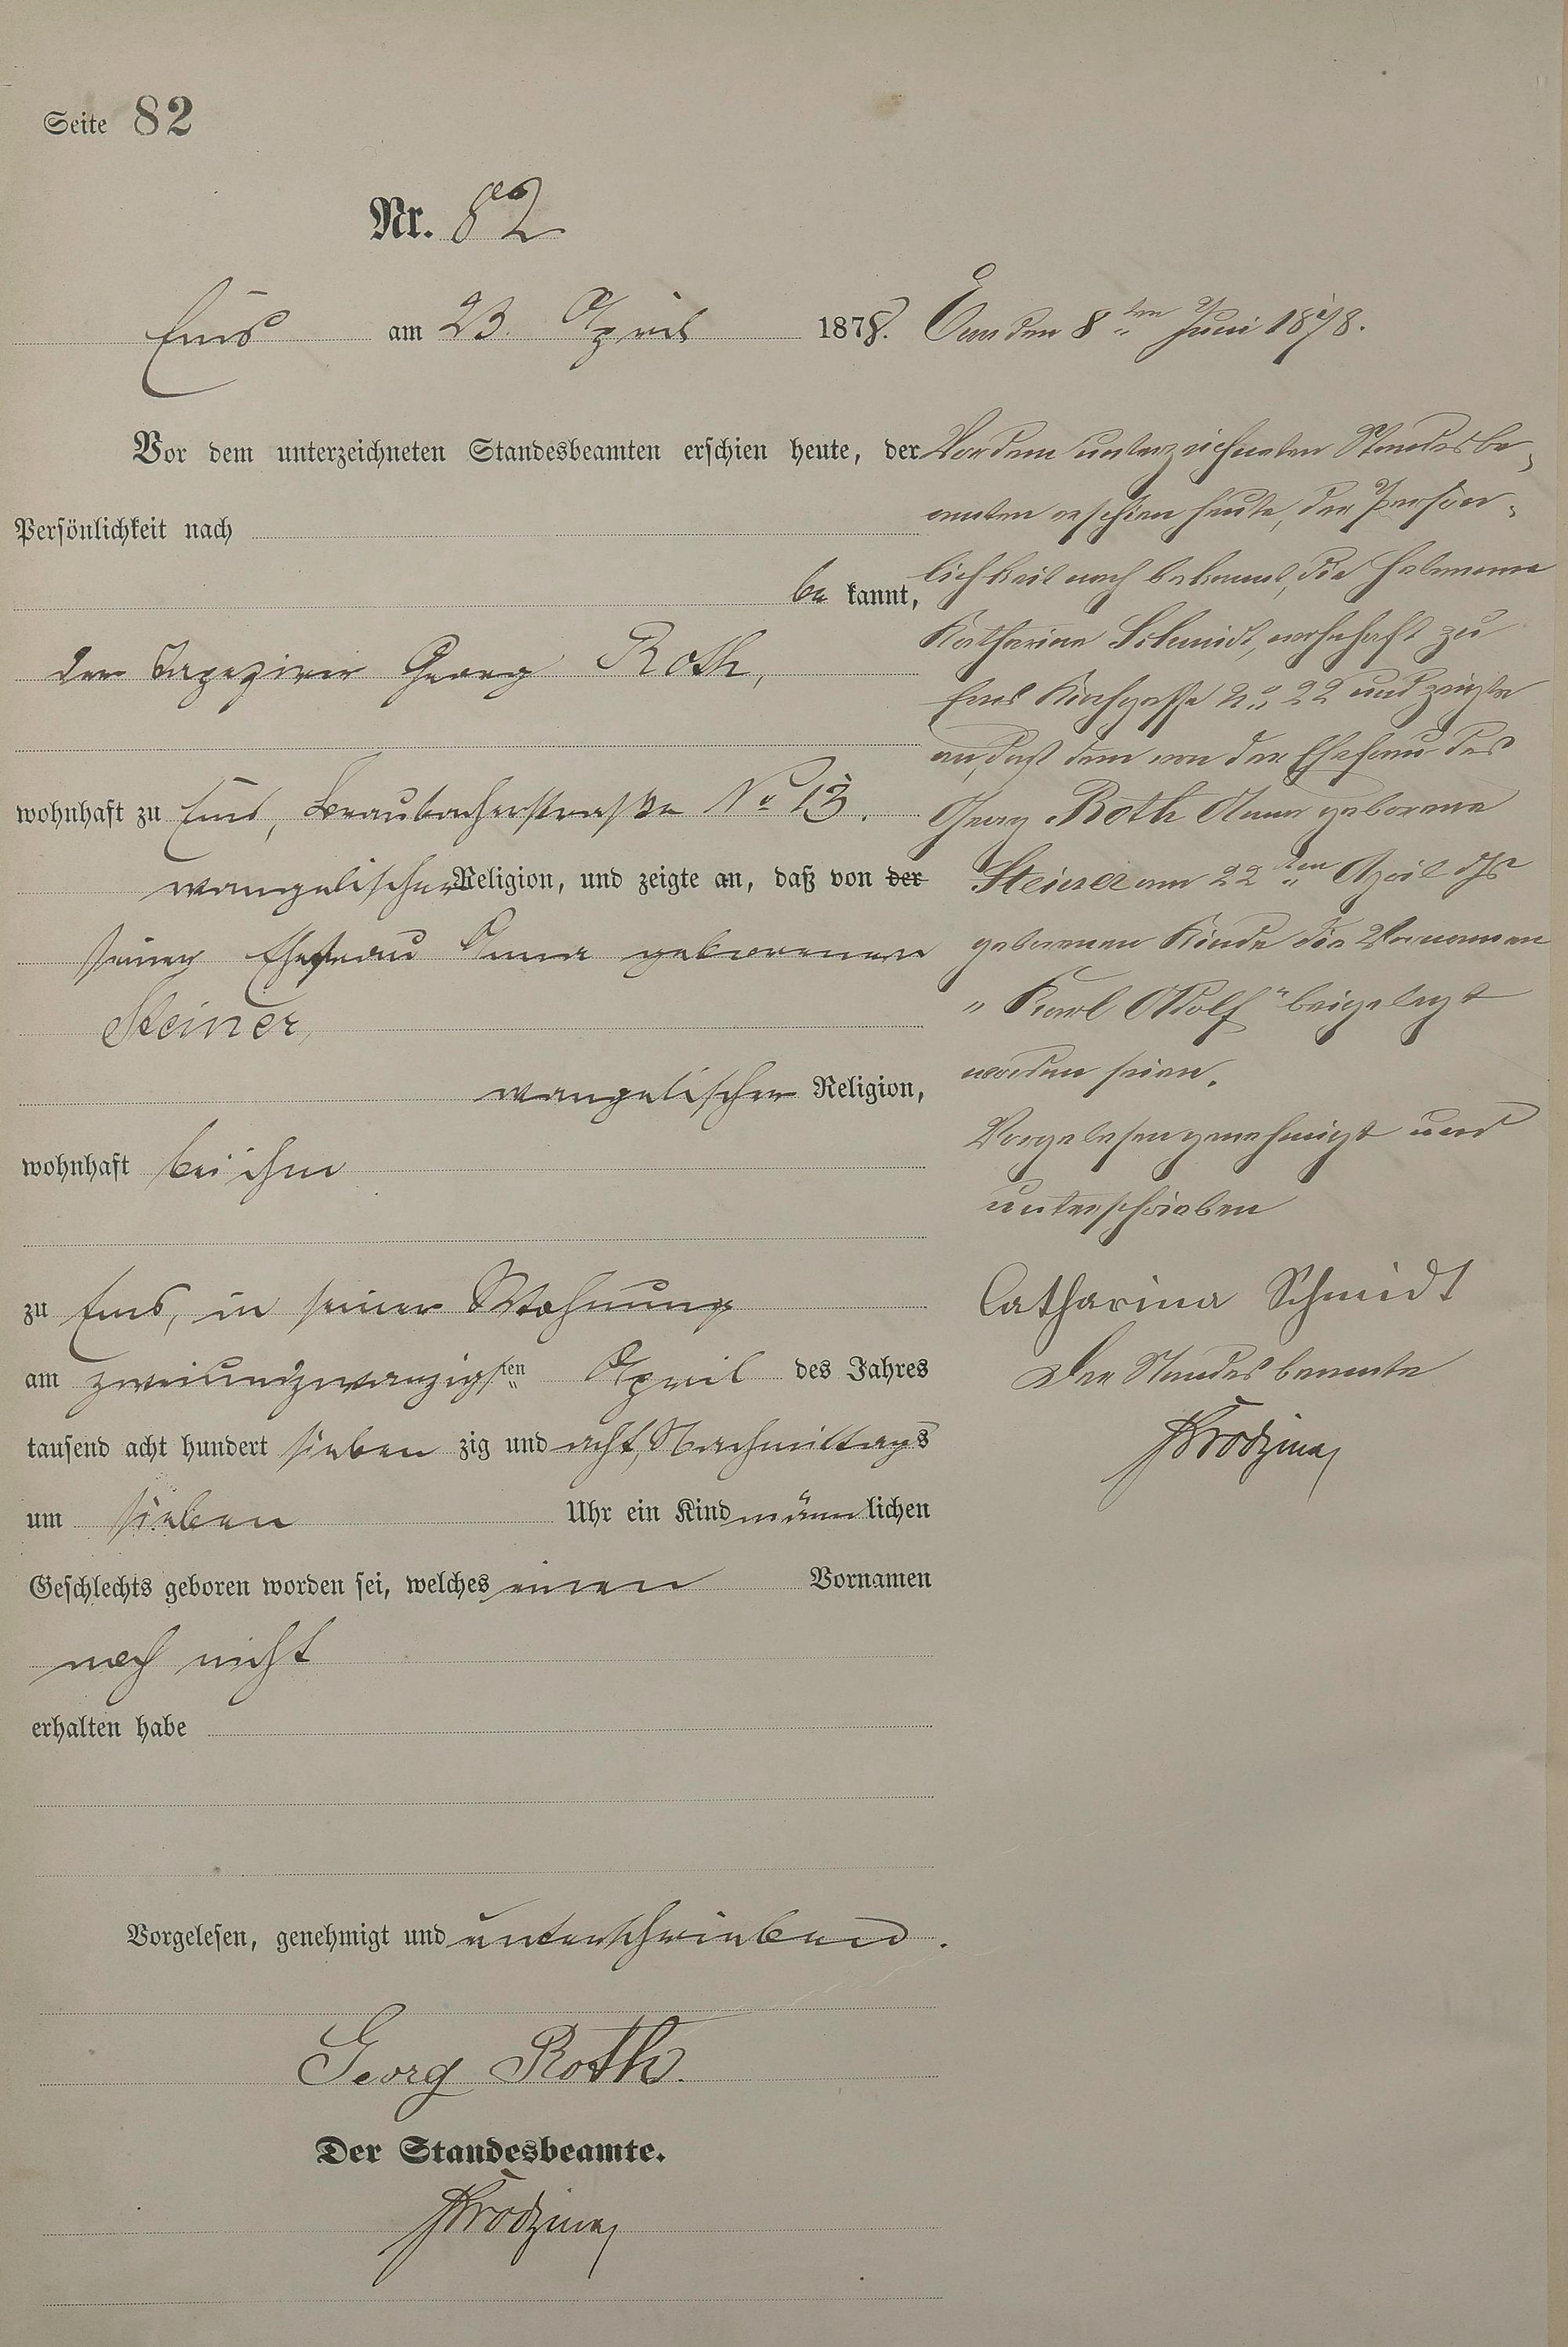 Seite 82
Nr. 82
Ems am 23. April 1878.
Vor dem unterzeichneten Standesbeamten erschien heute, der
Persönlichkeit nach
be kannt,
der Tapezirer Georg Roth,
wohnhaft zu Ems, Braubacherstraße No 13.
evangelischer Religion, und zeigte an, daß von der
seiner Ehefrau Anna geborenen
Steiner,
evangelischer Religion,
wohnhaft bei ihm
zu Ems, in seiner Wohnung
am zweiundzwanzigsten April des Jahres
tausend acht hundert sieben zig und acht, Nachmittags
um sieben Uhr ein Kind männlichen
Geschlechts geboren worden sei, welches einen Vornamen
noch nicht
erhalten habe
Vorgelesen, genehmigt und unterschrieben.
Georg Roth.
Der Standesbeamte.
Ems den 8ten Juni 1878.
Vor dem unterzeichneten Standesbe-
amten erschien heute, der Persön-
lichkeit nach bekannt, die Hebamme
Katharina Schmidt, wohnhaft zu
Ems Kirchgasse No 22 und zeigte
an, daß dem von der Ehefrau des
Georg Roth Anna geborene
Steiner am 22ten April d Js
geborenen Kinde die Vornamen
"Karl Adolf" beigelegt
worden seien.
Vorgelesen genehmigt und
unterschrieben
Catharina Schmidt
Der Standesbeamte